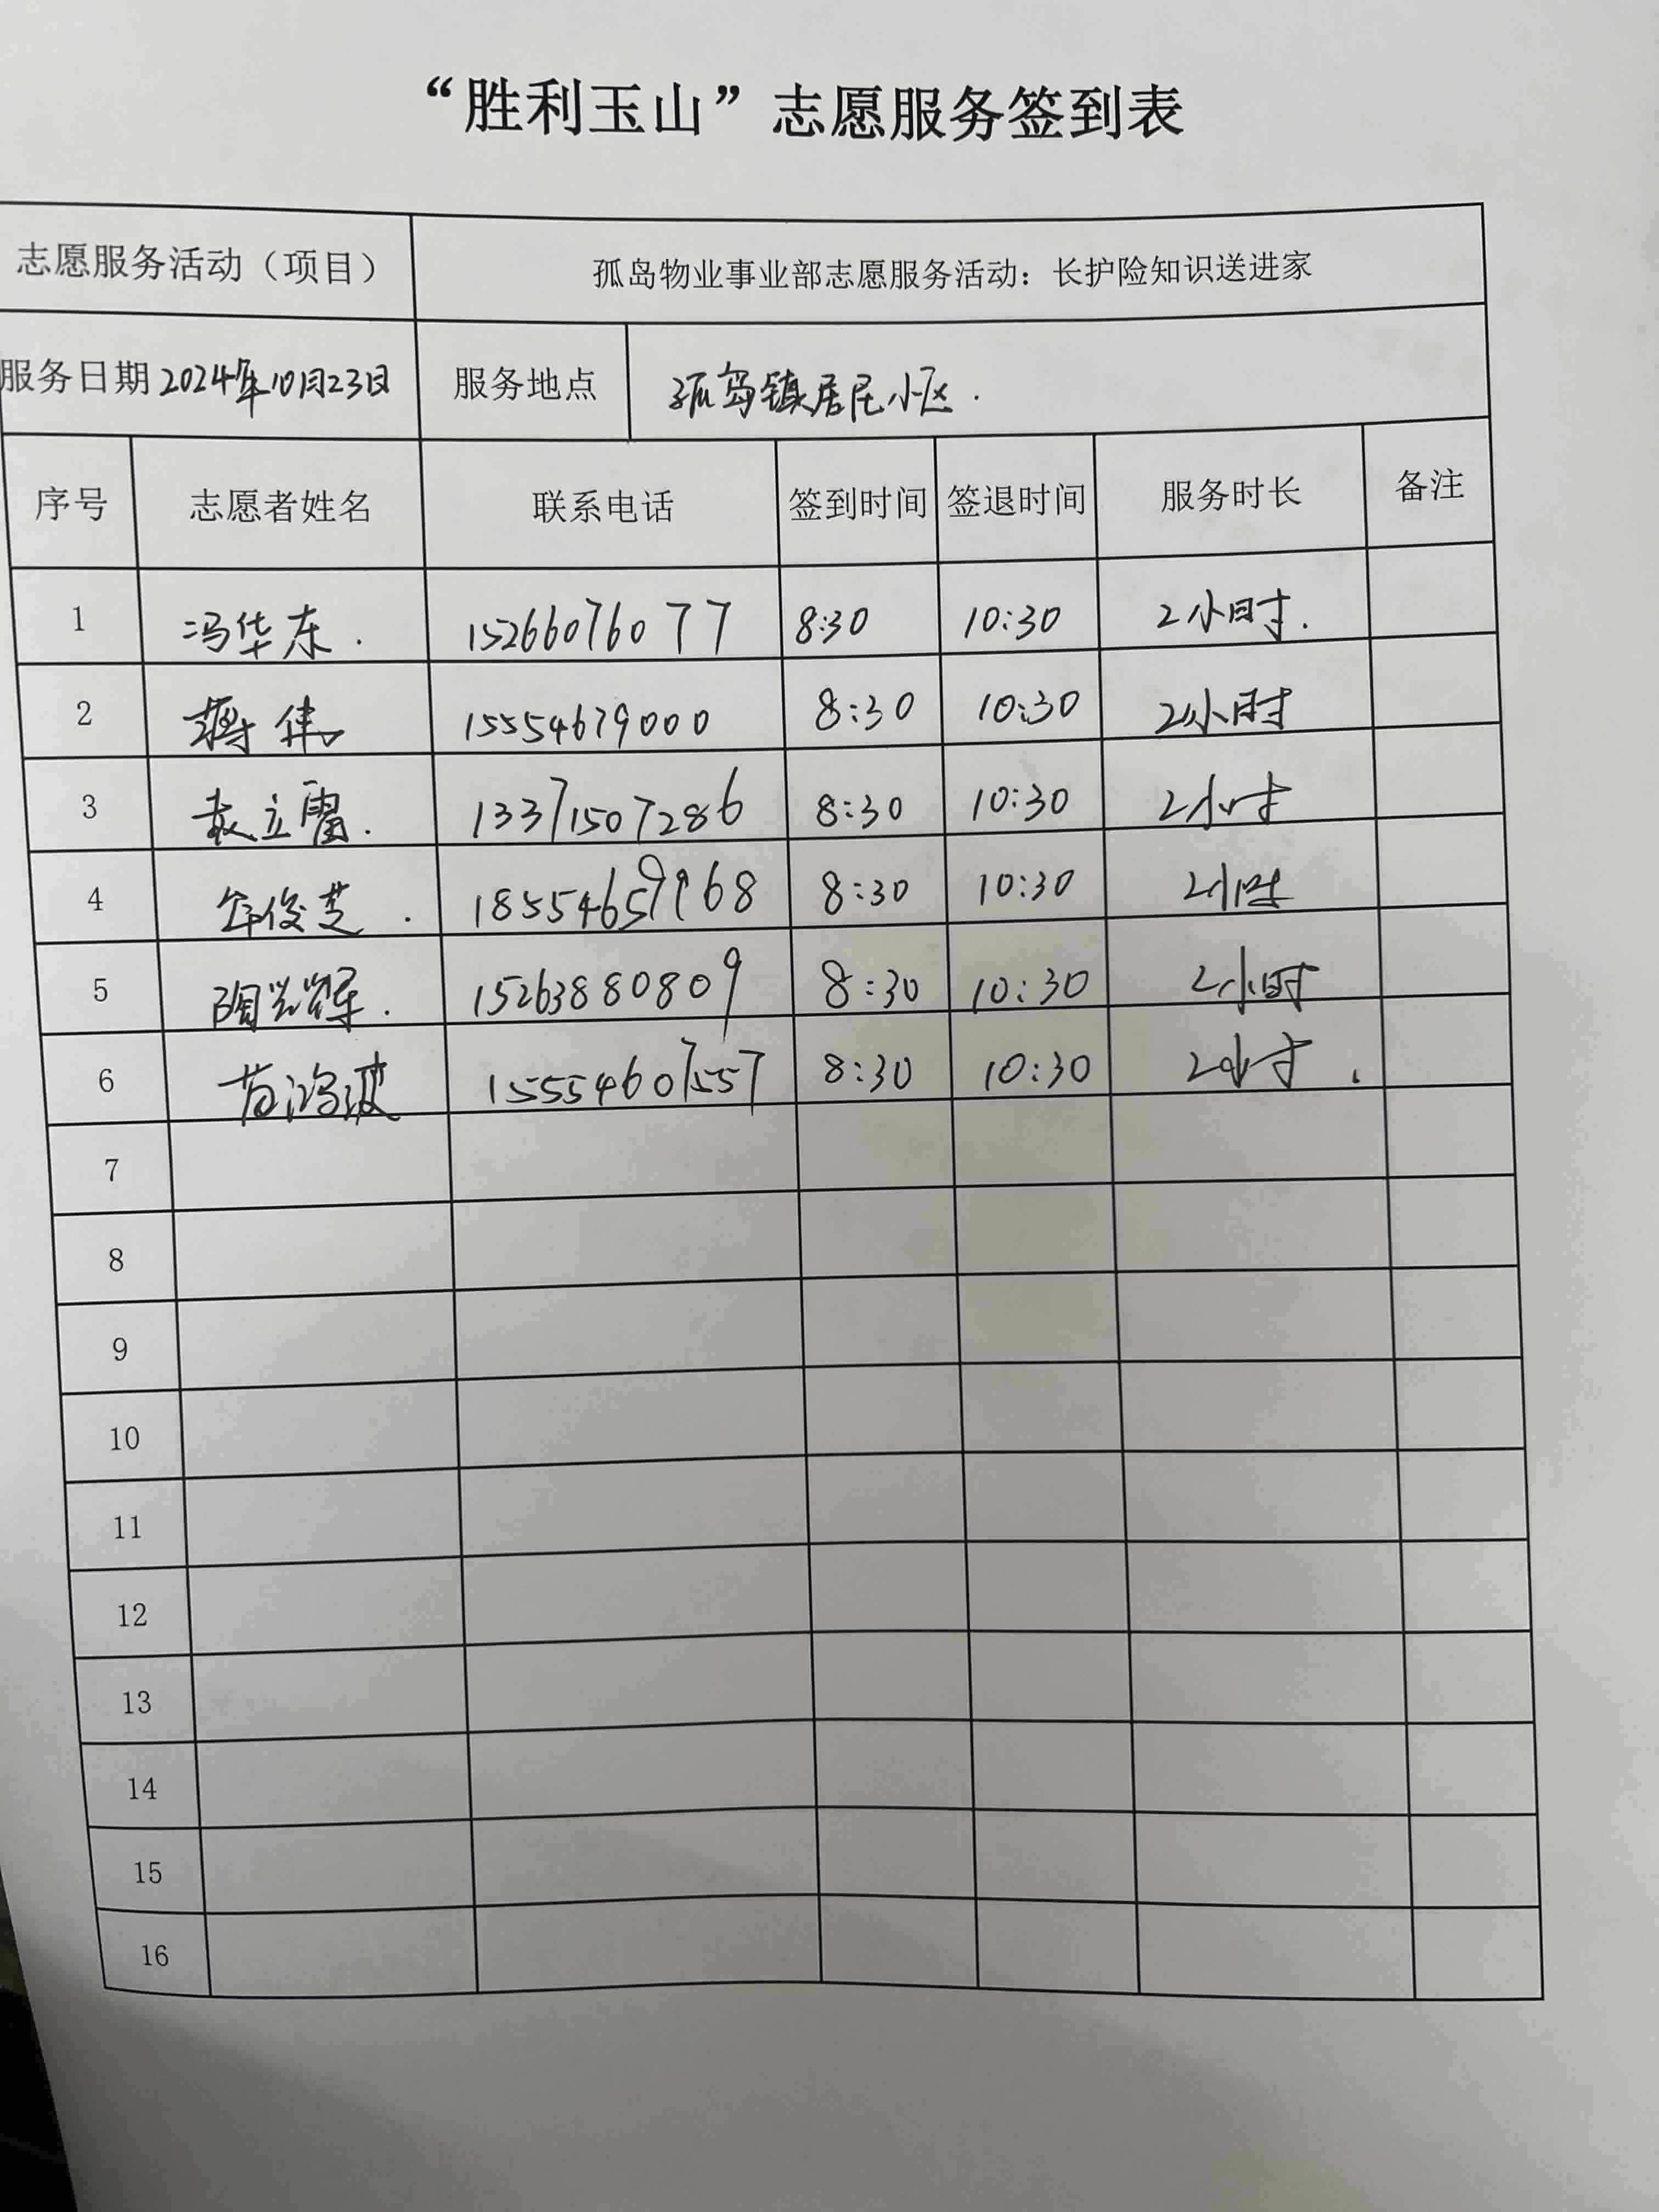 “胜利玉山”志愿服务签到表
志愿服务活动（项目） 孤岛物业事业部志愿服务活动：长护险知识送进家
服务日期 2024年10月23日 服务地点 孤岛镇居民小区.
序号 志愿者姓名 联系电话 签到时间 签退时间 服务时长 备注
1 冯华东. 15266076077 8:30 10:30 2小时.
2 蒋伟 15554679000 8:30 10:30 2小时
3 13371507286 8:30 10:30 2小时
4 8:30 10:30 2小时
5 15263880809 8:30 10:30 2小时
6 苗鸿波 15554607557 8:30 10:30 2小时.
7
8
9
10
11
12
13
14
15
16